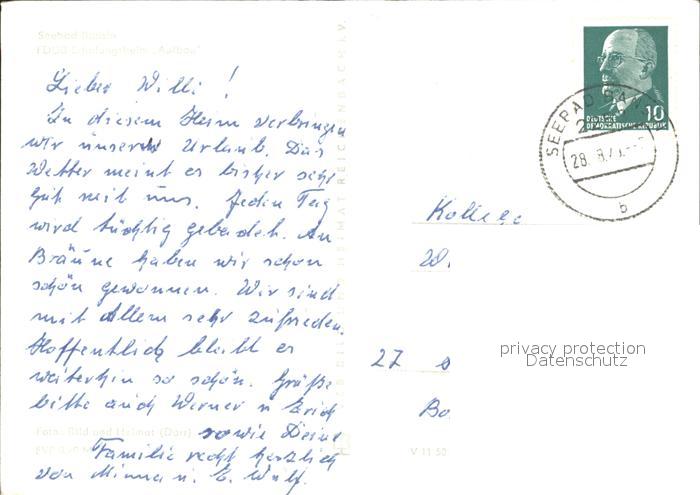 Seebad Bansin
FDGB-Erholungsheim „Aufbau"
Lieber Willi!
In diesem Heim verbringen
wir unseren Urlaub. Das
Wetter meint es bisher sehr
gut mit uns. Jeden Tag
wird tüchtig gebadet. An
Bräune haben wir schon
schön gewonnen. Wir sind
mit Allem sehr zufrieden.
Hoffentlich bleibt es
weiterhin so schön. Grüße
bitte auch Werner u Erich
sowie Deine
Familie recht herzlich
von Minna u. E. Wulf.
Foto: Bild und Heimat (Darr)
BILD UND HEIMAT REICHENBACH I.V.
V 11 50
10
DEUTSCHE
DEMOKRATISCHE REPUBLIK
SEEBAD BAN
28. 8. 7
b
Kollege
W.
27 S
Bo
privacy protection
Datenschutz